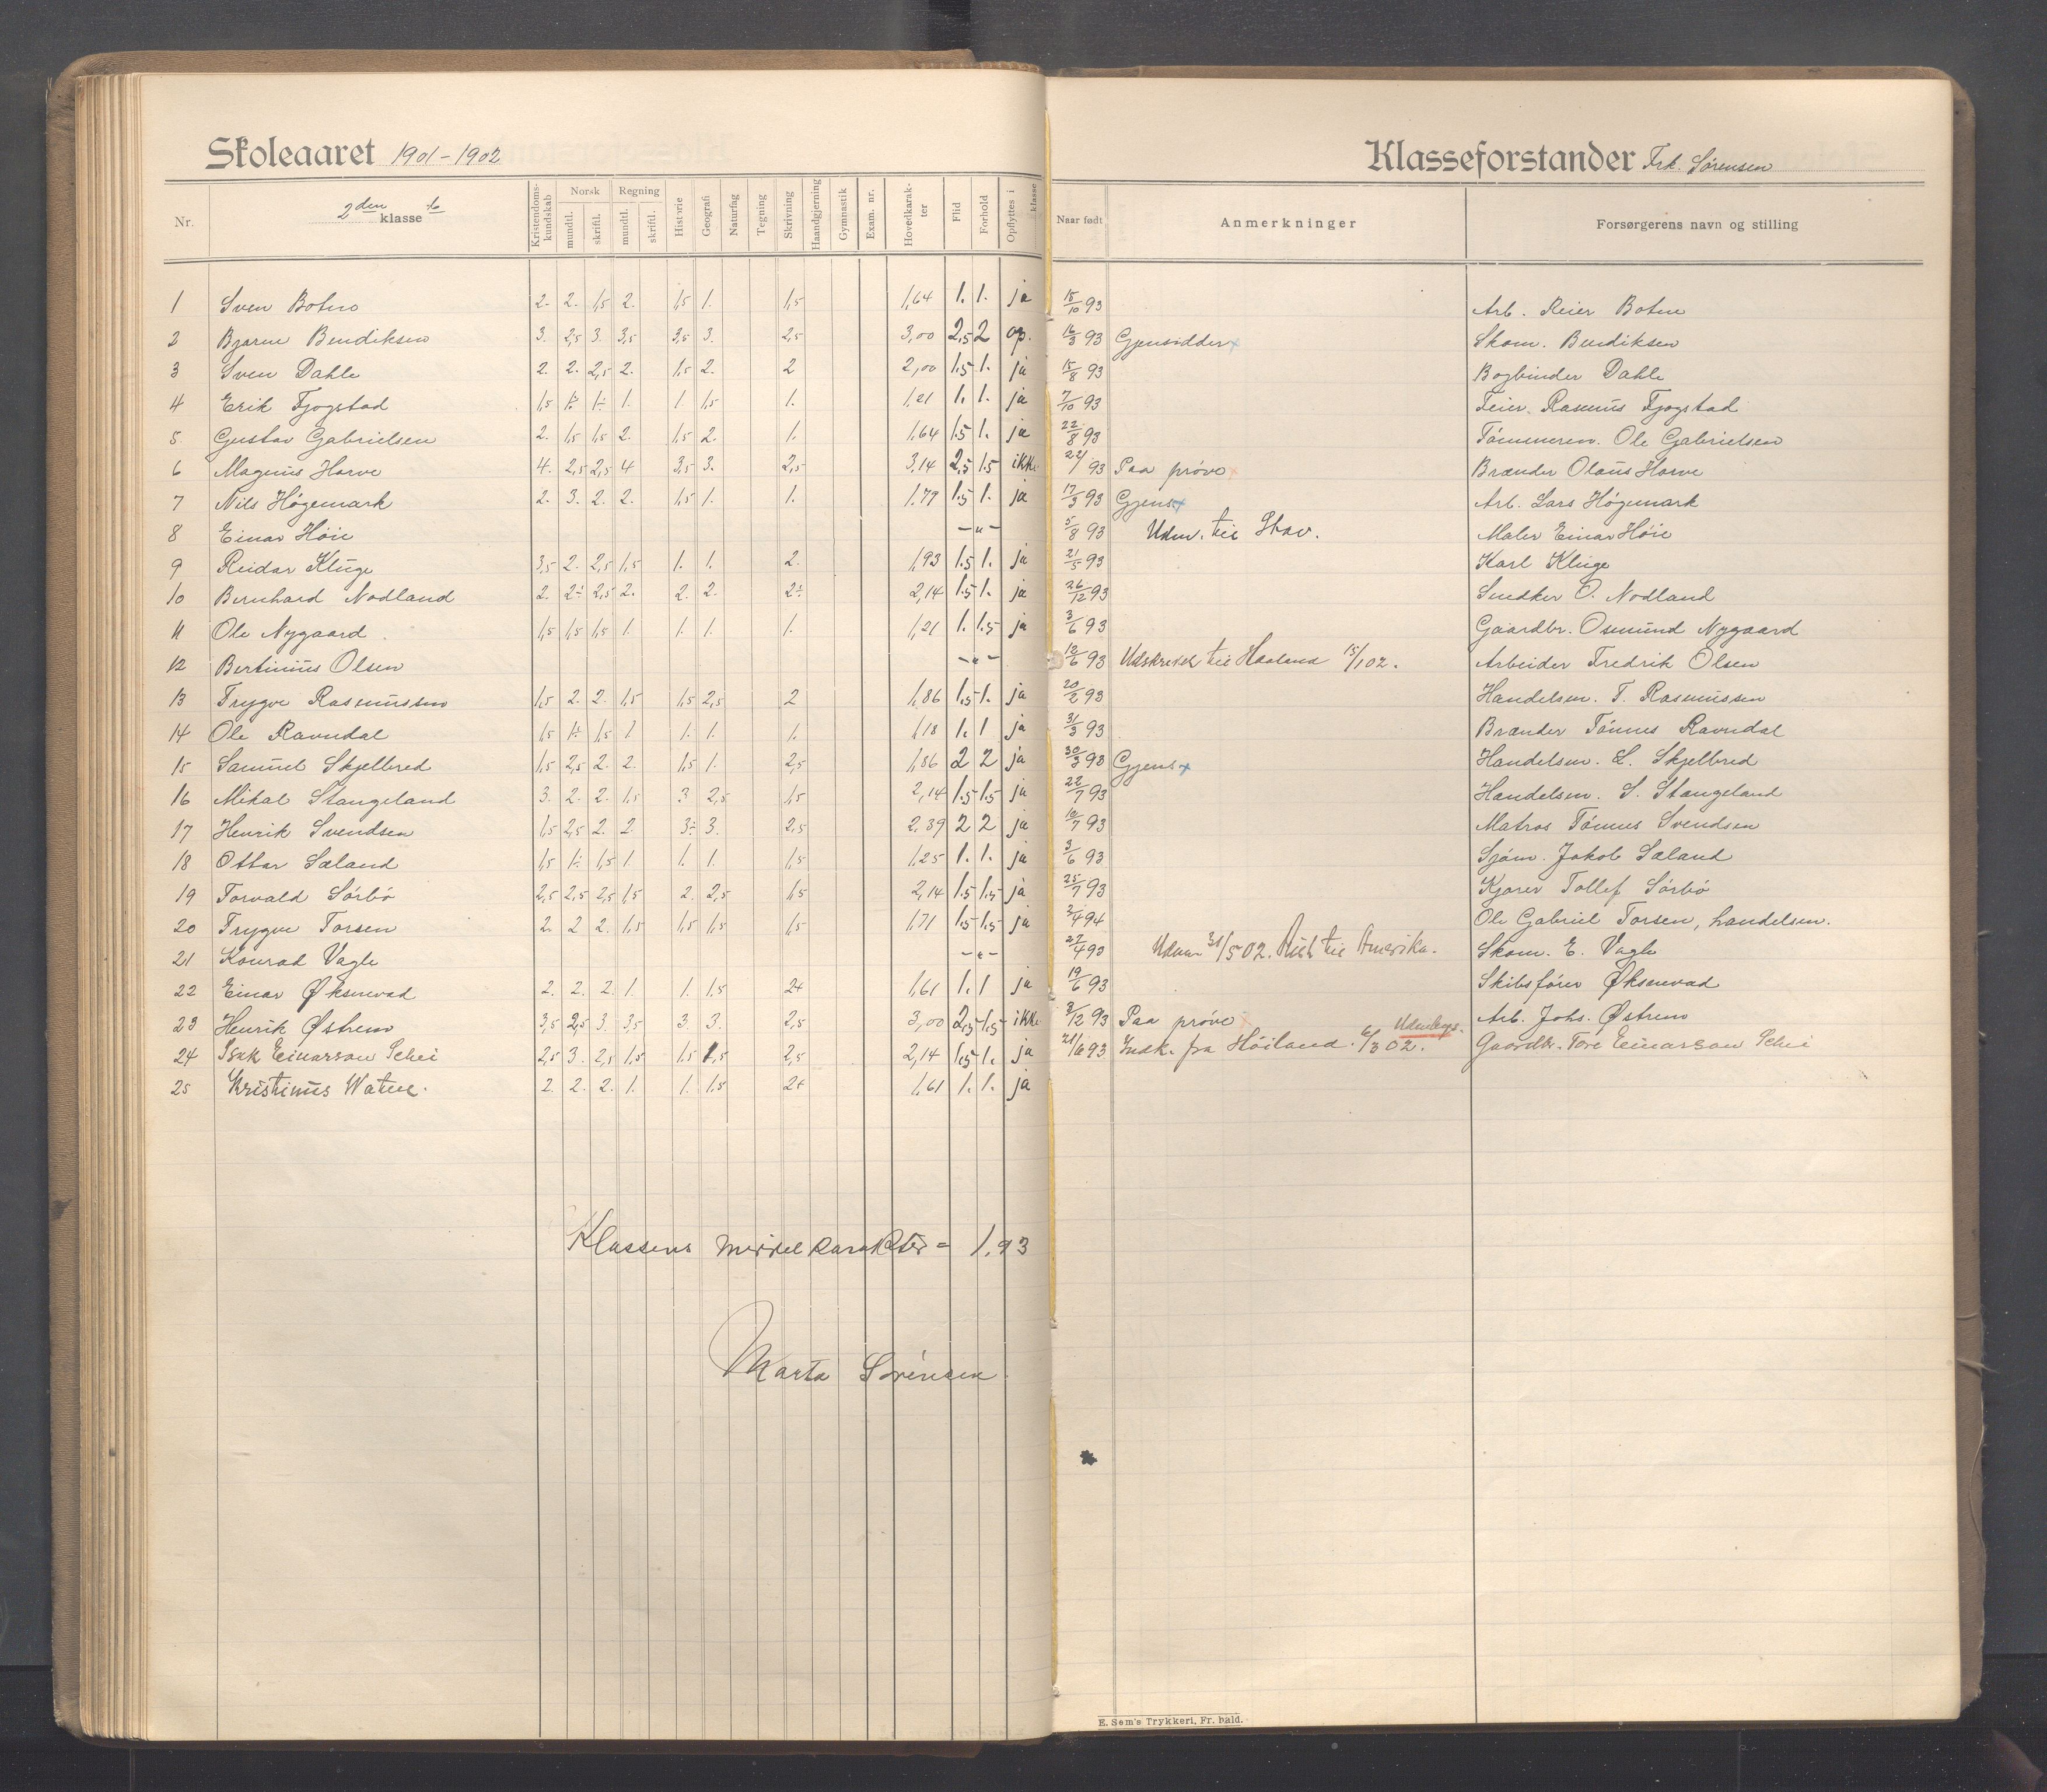 Skoleaaret 1901-1902
Klasseforstander Frk. Sørensen
Nr. 2den klasse b Kristendomskundskab Norsk mundtl. skriftl. Regning mundtl. skriftl. Historie Geografi Naturfag Tegning Skrivning Haandgjerning Gymnastik Exam. nr. Hovedkarakter Flid Forhold Opflyttes i klasse Naar født Anmerkninger Forsørgerens navn og stilling
1 Sven Botne 2. 2. 1,5 2. 1,5 1. 1,5 1,64 1. 1. ja 15/10 93 Arb. Reier Botne
2 Bjarne Bendiksen 3. 2,5 3. 3,5 3,5 3. 2,5 3,00 2,5 2 op. 16/3 93 Gjensidder x Skom. Bendiksen
3 Sven Dahle 2. 2. 2,5 2. 1,5 2. 2 2,00 1.5 1. ja 15/8 93 Bogbinder Dahle
4 Erik Fjogstad 1,5 1÷ 1÷ 1. 1 1,5 1. 1,21 1. 1. ja 7/10 93 Feier. Rasmus Fjogstad
5 Gustav Gabrielsen 2. 1,5 1,5 2. 1,5 2. 1. 1,64 1.5 1. ja 22/8 93 Tømmerm. Ole Gabrielsen
6 Magnus Harve 4. 2,5 2,5 4 3,5 3. 2,5 3,14 2,5 1.5 ikke 22/1 93 Paa prøve x Brænder Olaus Harve
7 Nils Høgemark 2. 3. 2. 2. 1,5 1. 1. 1.79 1.5 1. ja 17/3 93 Gjens. x Arb. Lars Høgemark
8 Einar Høie -"- 5/8 93 Udm. til Stav. Maler Einar Høie
9 Reidar Kluge 3,5 2. 2,5 1,5 1. 1. 2. 1,93 1.5 1. ja 21/5 93 Karl Kluge
10 Bernhard Nodland 2. 2÷ 2,5 2. 2. 2. 2÷ 2,14 1.5 1. ja 26/12 93 Snedker O. Nodland
11 Ole Nygaard 1,5 1,5 1,5 1. 1. 1. 1. 1,21 1. 1.5 ja 3/6 93 Gaardbr. Osmund Nygaard
12 Bertinius Olsen -"- 12/6 93 Udskrevet til Haaland 15/1 02. Arbeider Fredrik Olsen
13 Trygve Rasmussen 1,5 2. 2. 1,5 1,5 2,5 2 1,86 1.5 1. ja 20/2 93 Handelsm. T. Rasmussen
14 Ole Ravndal 1,5 1÷ 1,5 1 1. 1. 1. 1,18 1. 1 ja 31/3 93 Brænder Tønnes Ravndal
15 Samuel Skjelbred 1,5 2,5 2. 2. 1,5 1. 2,5 1,86 2 2 ja 30/3 93 Gjens. x Handelsm. L. Skjelbred
16 Mikal Stangeland 3. 2. 2. 1,5 3 2,5 1,5 2,14 1.5 1.5 ja 22/7 93 Handelsm. S. Stangeland
17 Henrik Svendsen 1,5 2,5 2. 2. 3÷ 3. 2,5 2,39 2 2 ja 10/7 93 Matros Tønnes Svendsen
18 Ottar Sæland 1,5 1÷ 1,5 1. 1. 1. 1,5 1,25 1. 1. ja 3/6 93 Sjøm. Jakob Sæland
19 Torvald Sørbø 2,5 2,5 2,5 1,5 2. 2,5 1,5 2,14 1.5 1.5 ja 25/7 93 Kjører Tollef Sørbø
20 Trygve Torsen 2. 2 2. 1,5 1,5 1,5 1,5 1,71 1.5 1.5 ja 2/4 94 Ole Gabriel Torsen, handelsm.
21 Konrad Vagle -"- 27/4 93 Udm. 31/5 02. Reist til Amerika. Skom. E. Vagle
22 Einar Øksnevad 2. 2. 2. 1. 1. 1,5 2+ 1,61 1. 1 ja 19/6 93 Skibsfører Øksnevad
23 Henrik Østrem 3,5 2,5 3. 3,5 3. 3. 2,5 3,00 2,5 1,5 ikke 3/12 93 Paa prøve Arb. Johs. Østrem
24 Isak Einarson Schei 2,5 3. 2,5 1,5 1,5 1,5 2,5 2,14 1.5 1. ja 21/6 93 Indk. fra Høiland. 6/3 02. Udenbys. Gaardbr. Tore Einarson Schei
25 Kristinus Watne. 2. 2. 2. 1. 1. 1,5 2+ 1,61 1. 1. ja
Klassens middelkarakter = 1,93
Marta Sørensen
E. Sem's Trykkeri, Fr. hald.